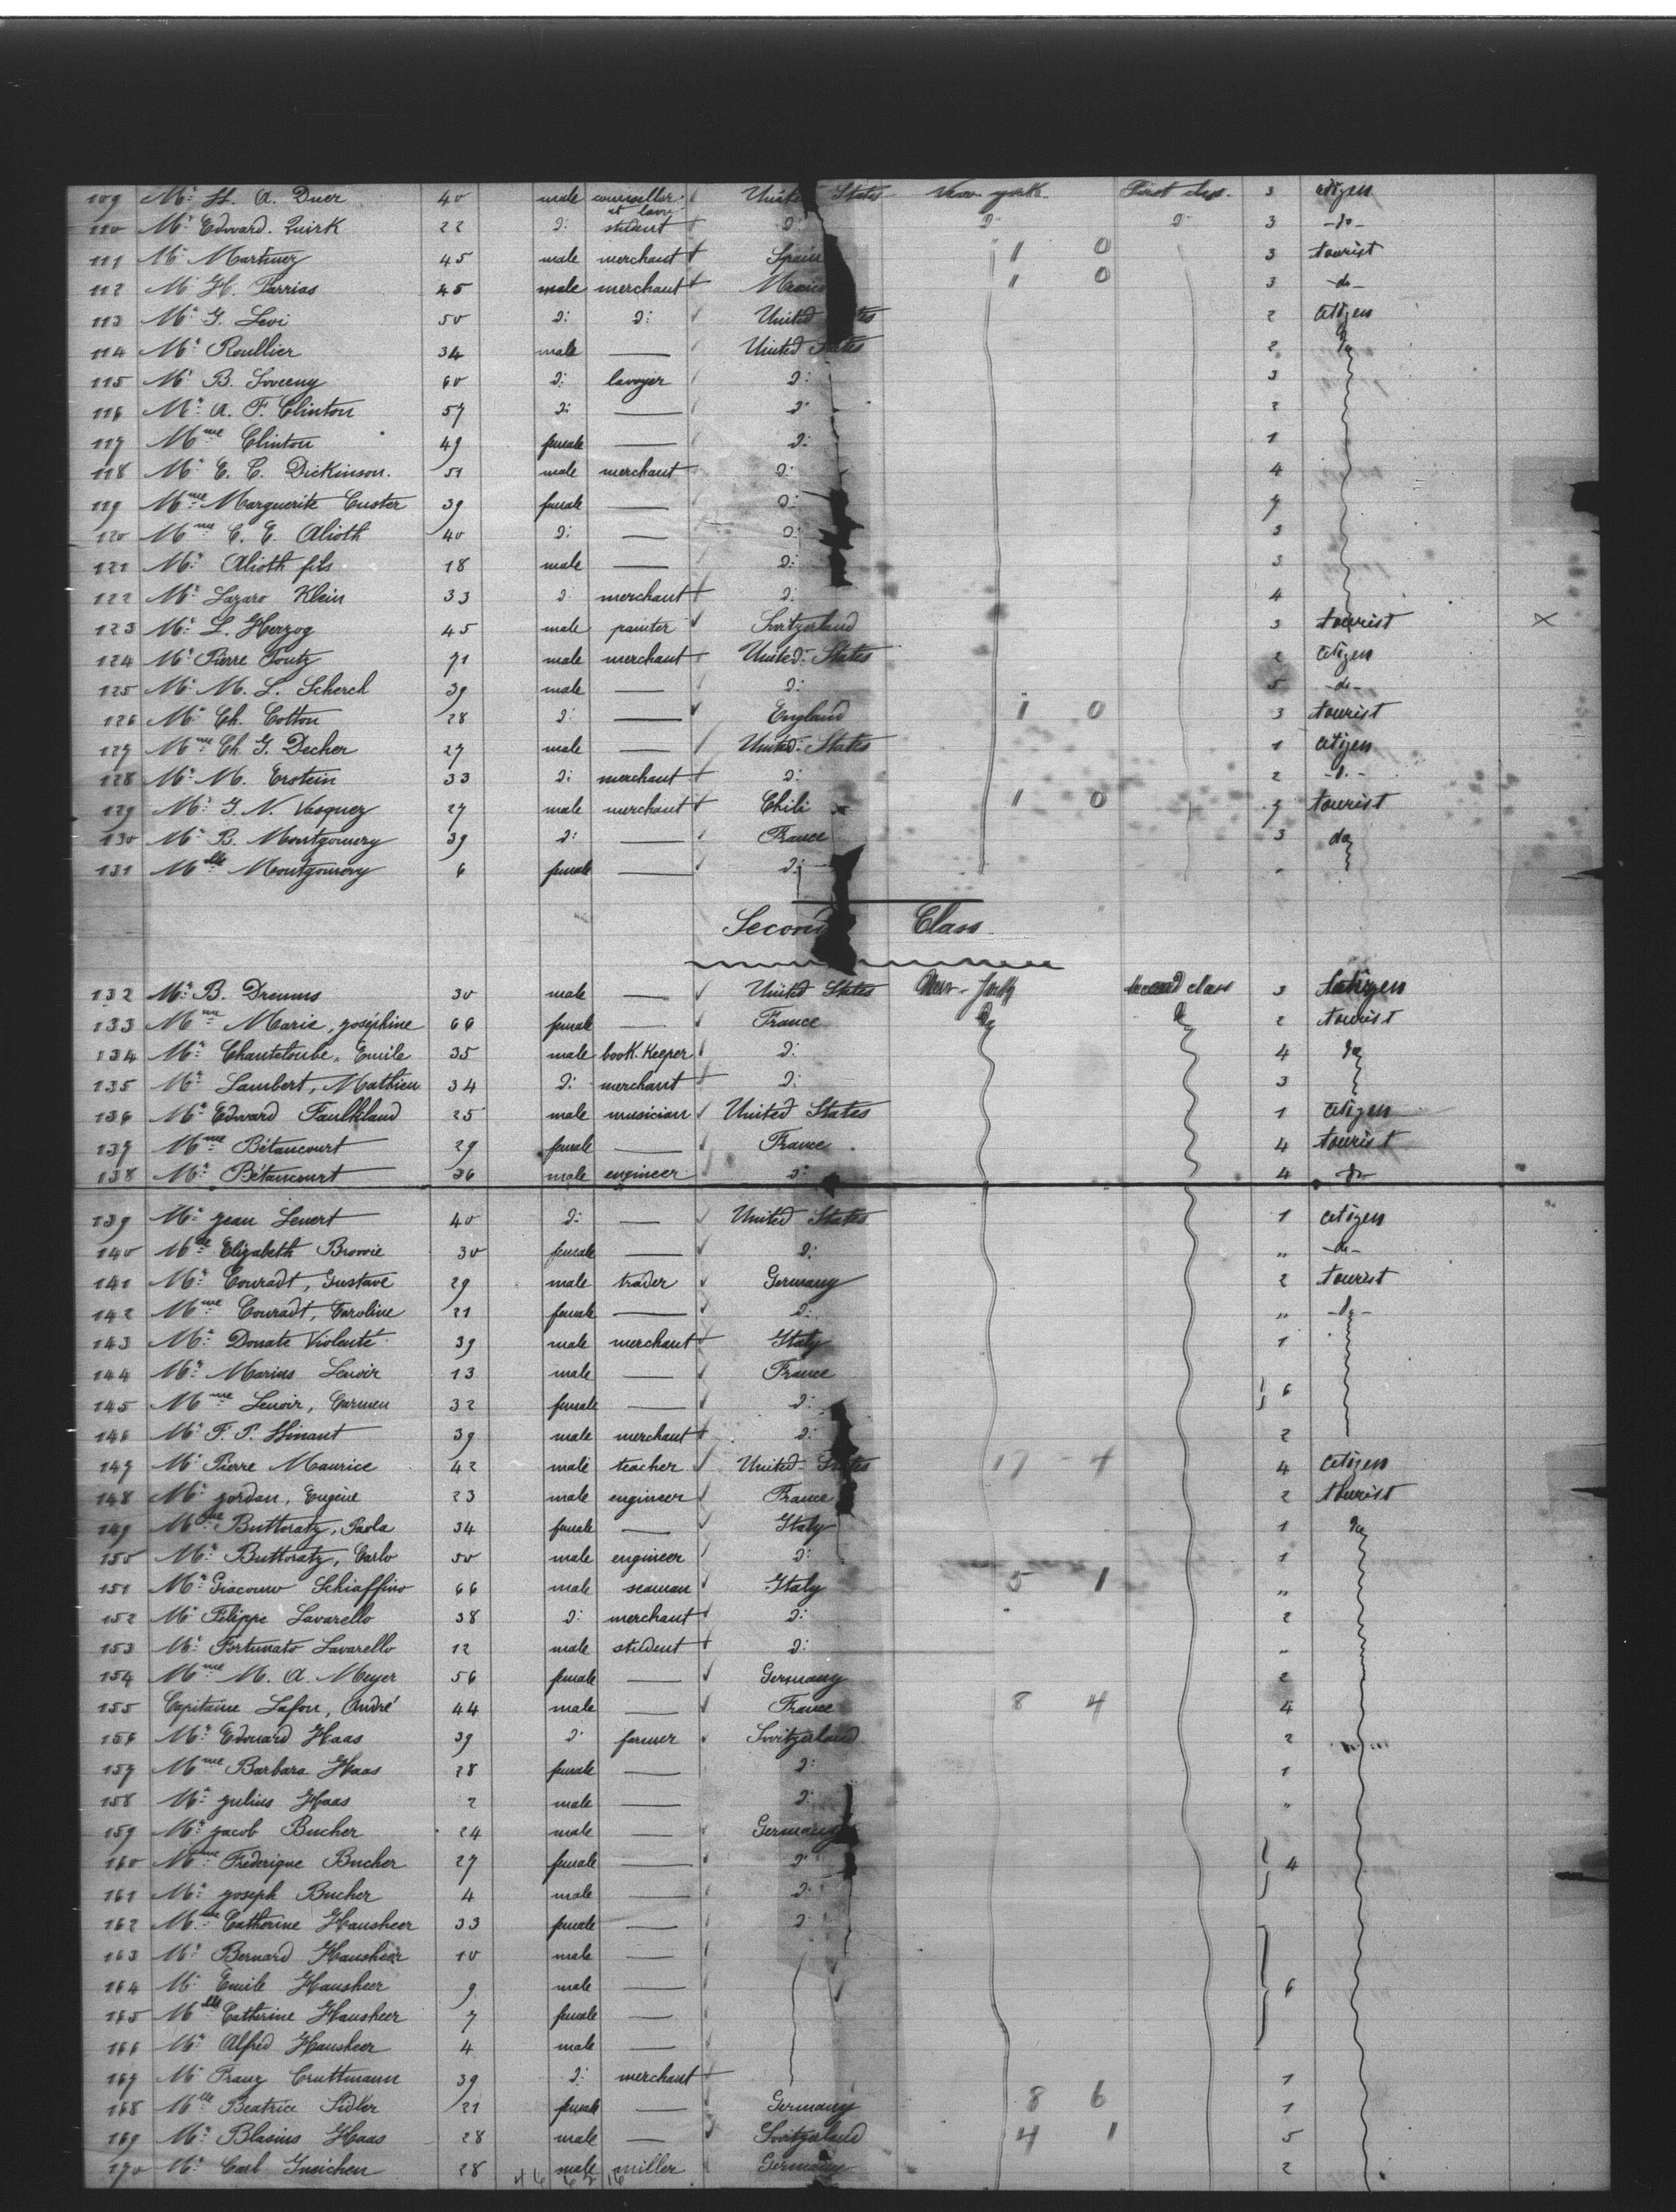 109 Mr. H. A. Duer 40 male counseller at law United States New york First class. 3 citizen
110 Mr. Edward Quirk 22 d: student d: d: d: 3 -do-
111 Mr. Martinez 45 male merchant Spain 1 0 3 tourist
112 Mr. H. Parrias 45 male merchant 1 0 3 -do-
113 Mr. G. Levi 50 d: d: United States 2 citizen
114 Mr. Roullier 34 male United States 2 do
115 Mr. B. 60 d: lawyer d: 3
116 Mr. A. F. Clinton 57 d: d: 2
117 Mme Clinton 49 female d: 1
118 Mr. E. C. Dickinson. 51 male merchant d: 4
119 Mme Marguerite Custer 39 female d: 7
120 Mme C. E. Alioth 40 d: d: 3
121 Mr. Alioth fils 18 male d: 3
122 Mr. Lazaro Klein 33 d merchant d: 4
123 Mr. L. Herzog 45 male painter Switzerland 3 tourist X
124 Mr. Pierre 71 male merchant United-States 2 citizen
125 Mr. M. L. Scherch 39 male d: 5 -do-
126 Mr. Ch. Cotton 28 d: England 1 0 3 tourist
127 Ch. G. Decher 27 male United-States 1 citizen
128 Mr. M. Erstein 33 d: merchant d: 2 -d.-
129 Mr. G. N. Vasquez 27 male merchant Chili 1 0 7 tourist
130 Mr. B. Montgomery 39 d: France 3 do
131 Mlle Montgomery 6 female d:
Second Class
132 Mr. B. 30 male United States New-York second class 3 citizen
133 Mme Marie, joséphine 66 female France do do 2 tourist
134 Mr. Chanteloube, Emile 35 male book-keeper d: 4 do
135 Mr. Lambert, Mathieu 34 d: merchant d: 3
136 Mr. Edward Faulkland 25 male musician United States 1 citizen
137 Mme Bétancourt 29 female France 4 tourist
138 Mr. Bétancourt 36 male engineer d: 4 do
139 Mr. jean 40 d: United States 1 citizen
140 Elizabeth Browie 30 female d: " -do-
141 Mr. Conradt, Gustave 29 male trader Germany 2 tourist
142 Mme Conradt, Caroline 21 female d: " -do-
143 Mr. Donate Violente 39 male merchant Italy 1
144 Mr. Marius Lenoir 13 male France
145 Mme Lenoir, Carmen 32 female d: 6
146 Mr. F. P. 39 male merchant d: 2
147 Mr. Pierre Maurice 42 male teacher United-States 17 - 4 4 citizen
148 Mr. jordan, Eugène 23 male engineer France 2 tourist
149 Buttoratz, Paola 34 female Italy 1 do
150 Mr. Buttoratz, Carlo 50 male engineer d: 1
151 Mr. Giacomo Schiaffino 66 male seaman Italy 5 1 "
152 Mr. Filippe Lavarello 38 d: merchant d: 2
153 Mr. Fortunato Lavarello 12 male student d: "
154 Mme M. A. Meyer 56 female Germany 2
155 Capitaine Lafon, André 44 male France 8 4 4
156 Mr. Edouard Haas 39 d: farmer Switzerland 2
157 Mme Barbara Haas 28 female d: 1
158 Mr. julius Haas 2 male d: "
159 Mr. jacob Bucher 24 male Germany
160 Mme Frederique Bucher 27 female d: 4
161 Mr. joseph Bucher 4 male d:
162 Mme Catherine Hausheer 33 female d:
163 Mr. Bernard Hausheer 10 male
164 Mr. Emile Hausheer 9 male 6
165 Mlle Catherine Hausheer 7 female
166 Mr. Alfred Hausheer 4 male
167 Mr. Franz Cruttmann 39 d: merchant 1
168 Mlle Beatrice Sidler 21 female Germany 8 6 1
169 Mr. Blasius Haas 28 male Switzerland 4 1 5
170 Mr. Carl Ineichen 28 male miller Germany 2